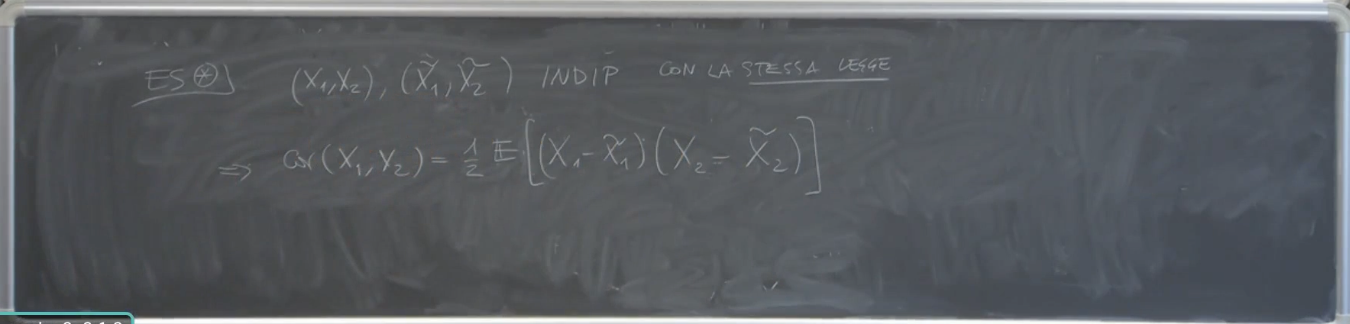 ES ⊛) (X₁,X₂), (X̃₁,X̃₂) INDIP CON LA STESSA LEGGE
⇒ cov(X₁,X₂) = 1/2 E[(X₁-X̃₁)(X₂-X̃₂)]